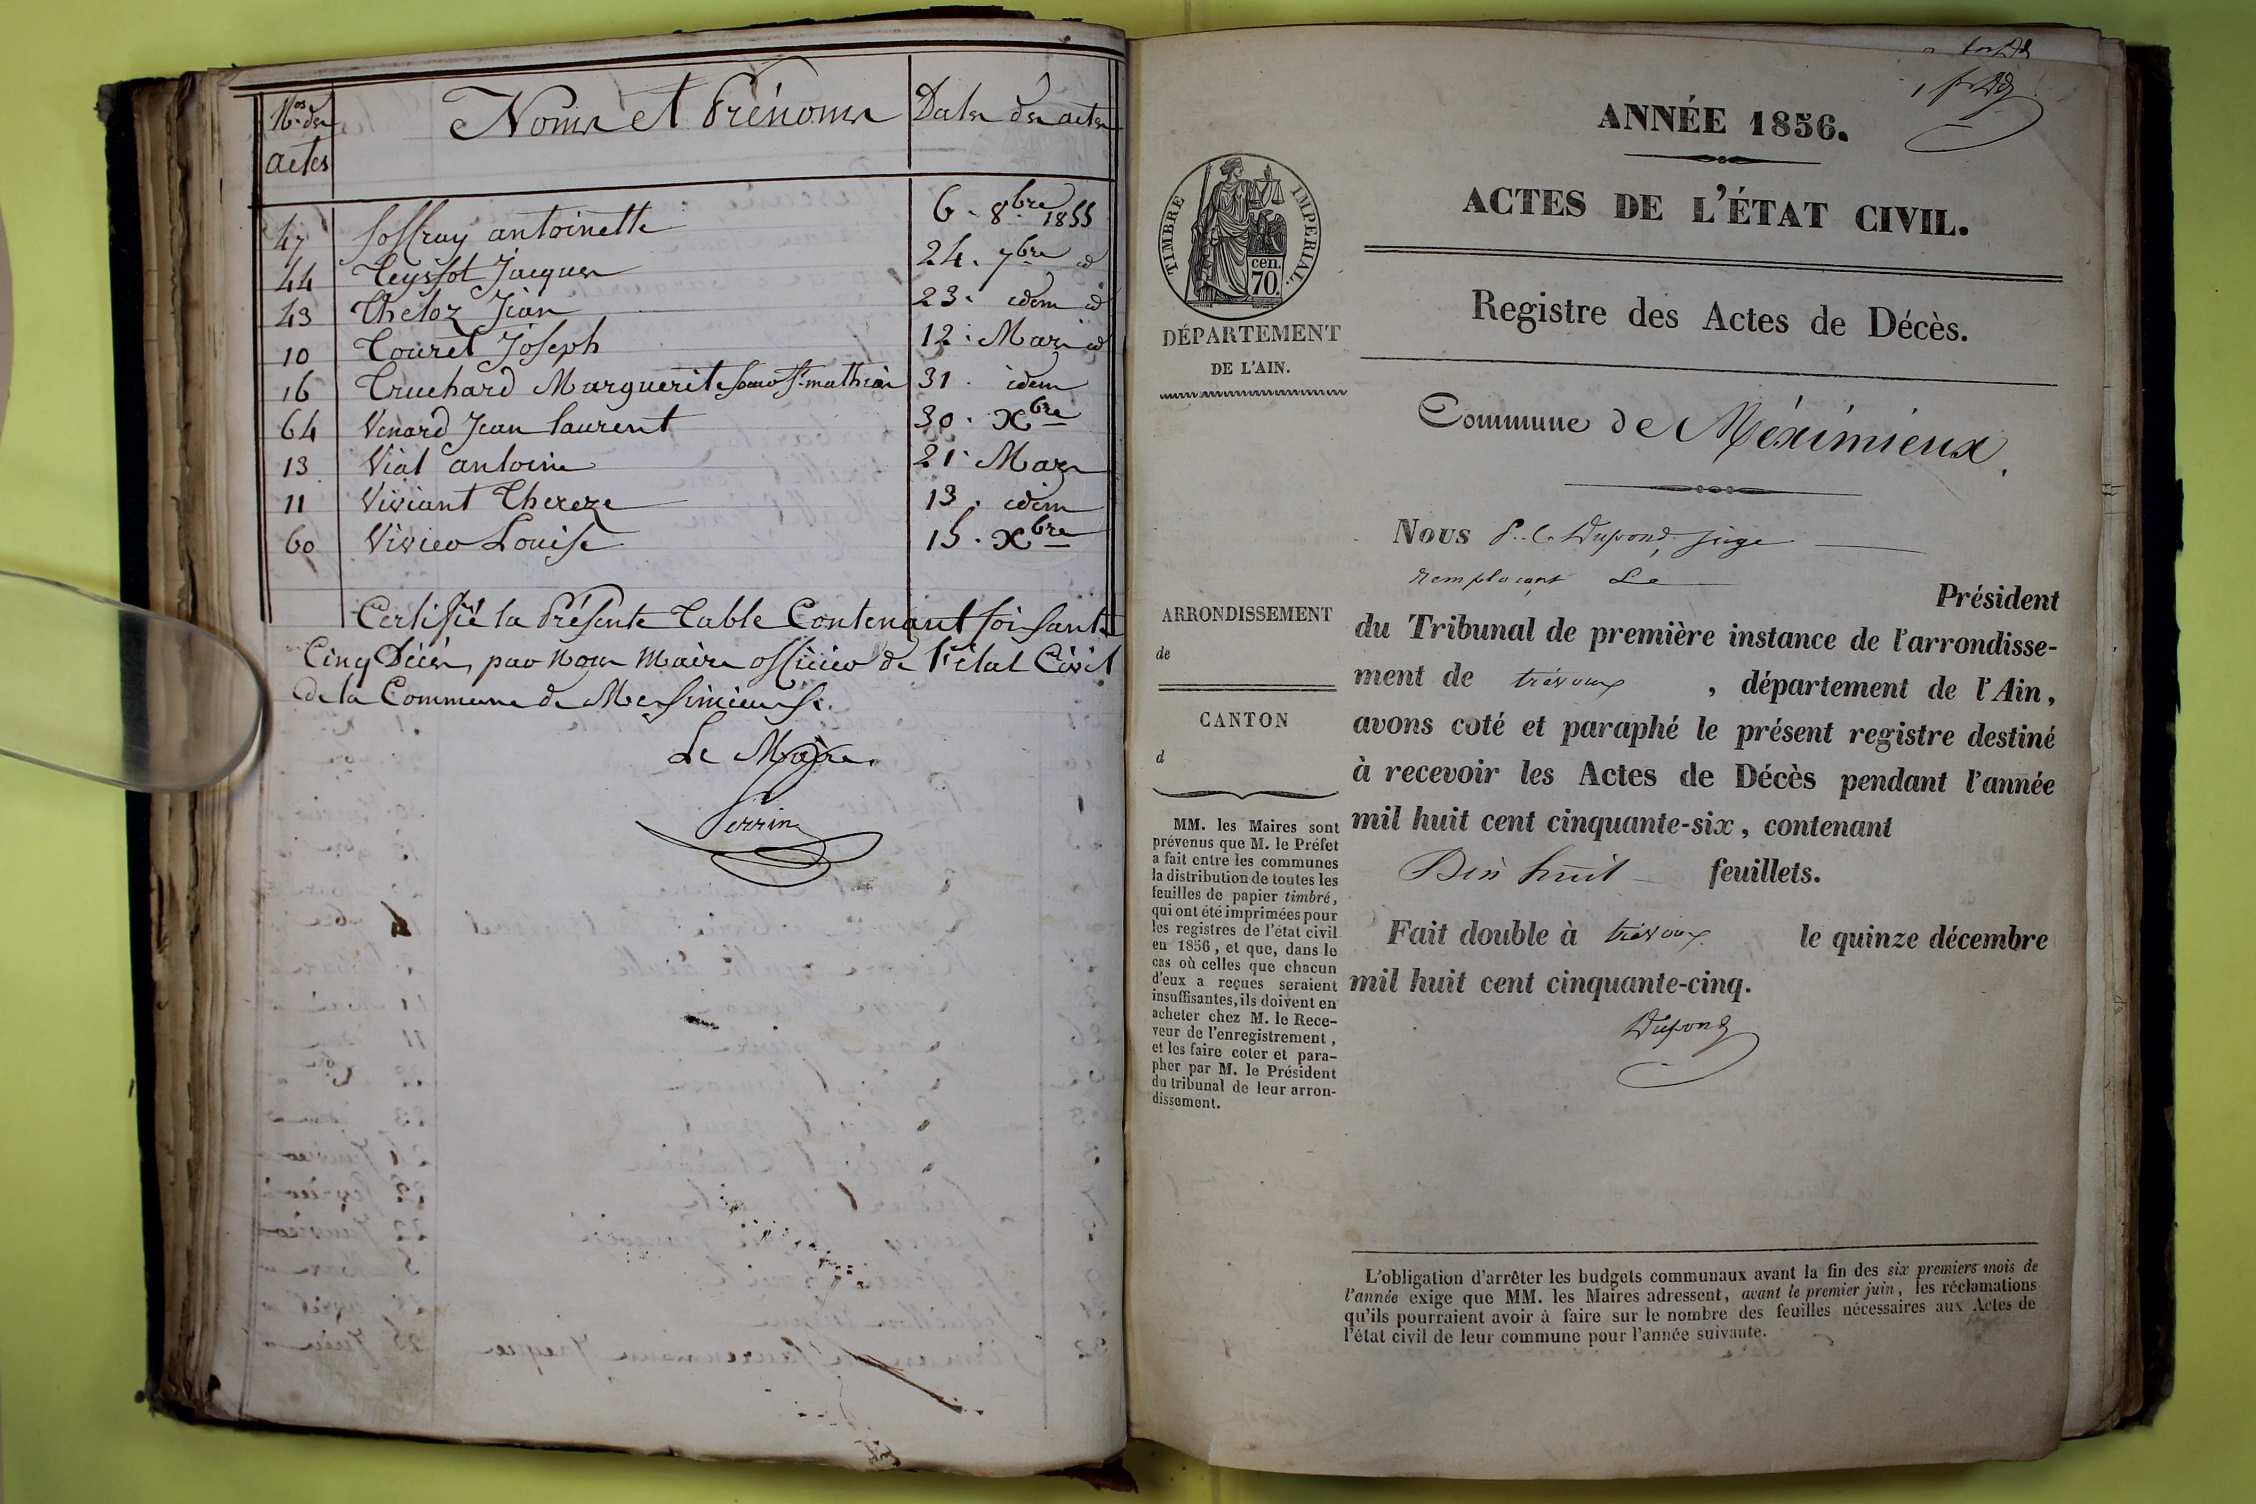 Nos des actes
Noms et Prénoms
Dates des actes
47 Soffray antoinette 6. 8bre 1855
44 Teyssot Jacques 24. 7bre id
43 Theloz Jean 23. idem id
10 Touret Joseph 12. Mars id
16 Truchard Marguerite soeur St mathieu 31. idem
64 Venard Jean Laurent 30. Xbre
13 Vial antoine 21. Mars
11 Viviant Thereze 13. idem
60 Vivier Louise 15. Xbre
Certifié la Présente Table Contenant soisante
Cinq Décès, par Nous Maire officier de l'état Civil
de la Commune de Messimieux.
Le Maire.
Perrin
ANNÉE 1856.
ACTES DE L'ÉTAT CIVIL.
TIMBRE IMPÉRIAL.
cen.
70.
DÉPARTEMENT
DE L'AIN.
Registre des Actes de Décès.
Commune de Méximieux.
Nous P. C. Dupond, juge
remplaçant Le
Président
du Tribunal de première instance de l'arrondisse-
ment de trévoux, département de l'Ain,
avons coté et paraphé le présent registre destiné
à recevoir les Actes de Décès pendant l'année
mil huit cent cinquante-six, contenant
Dix huit feuillets.
Fait double à trévoux le quinze décembre
mil huit cent cinquante-cinq.
Dupond
ARRONDISSEMENT
de
CANTON
d
MM. les Maires sont
prévenus que M. le Préfet
a fait entre les communes
la distribution de toutes les
feuilles de papier timbré,
qui ont été imprimées pour
les registres de l'état civil
en 1856, et que, dans le
cas où celles que chacun
d'eux a reçues seraient
insuffisantes, ils doivent en
acheter chez M. le Rece-
veur de l'enregistrement,
et les faire coter et para-
pher par M. le Président
du tribunal de leur arron-
dissement.
L'obligation d'arrêter les budgets communaux avant la fin des six premiers mois de
l'année exige que MM. les Maires adressent, avant le premier juin, les réclamations
qu'ils pourraient avoir à faire sur le nombre des feuilles nécessaires aux Actes de
l'état civil de leur commune pour l'année suivante.